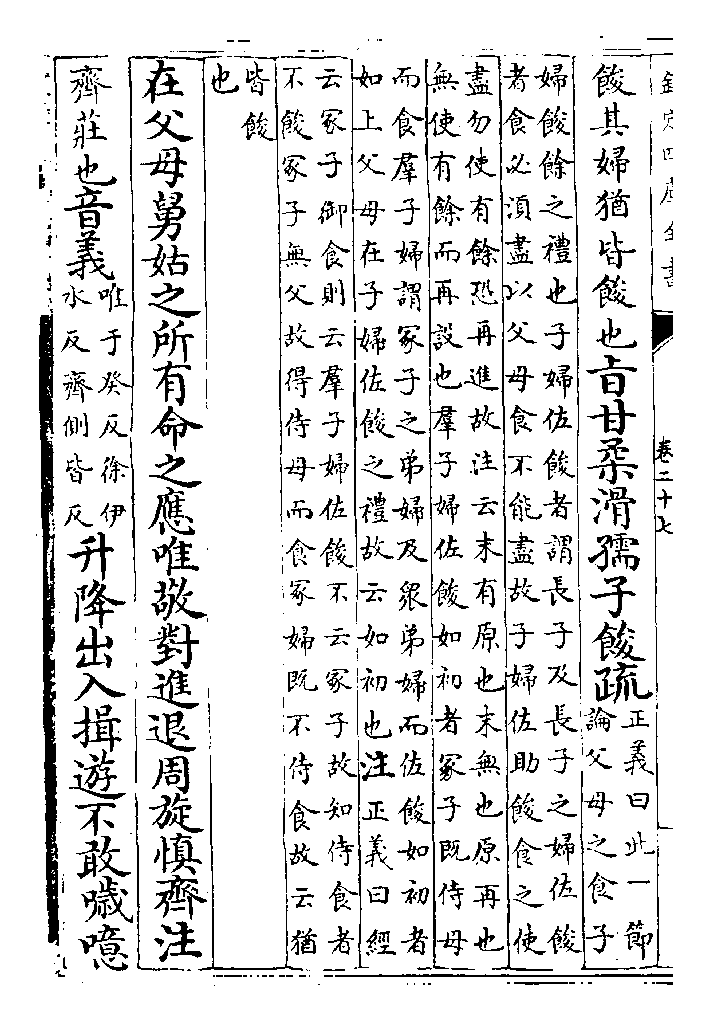 欽定四庫全書
卷二十七
餕其婦猶皆餕也旨甘柔滑孺子餕疏正義曰此一節
論父母之食子
婦餕餘之禮也子婦佐餕者謂長子及長子之婦佐餕
者食必須盡以父母食不能盡故子婦佐助餕食之使
盡勿使有餘恐再進故注云末有原也末無也原再也
無使有餘而再設也羣子婦佐餕如初者冡子既侍母
而食羣子婦謂冡子之弟婦及衆弟婦而佐餕如初者
如上父母在子婦佐餕之禮故云如初也注正義曰經
云冡子御食則云羣子婦佐餕不云冡子故知侍食者
不餕冡子無父故得侍母而食冡婦既不侍食故云猶
皆餕
也
在父母舅姑之所有命之應唯敬對進退周旋慎齊注
齊莊也音義唯于癸反徐伊
水反齊側皆反
升降出入揖遊不敢噦噫